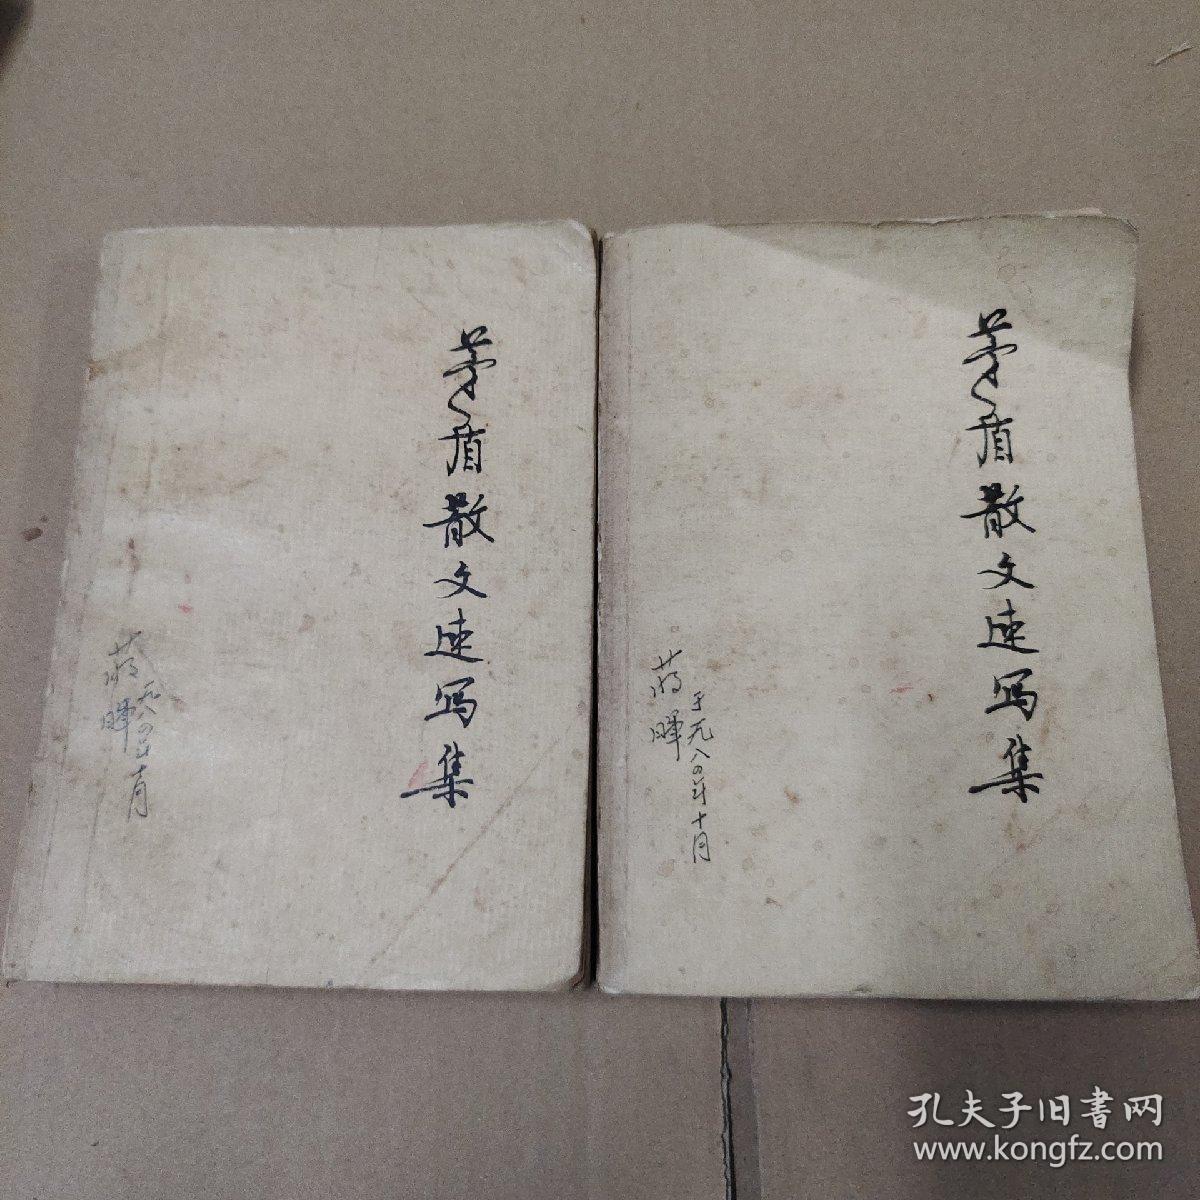 茅盾散文速写集
蒋晖
一九八四年十月
茅盾散文速写集
蒋晖
于一九八四年十月
孔夫子旧書网
www.kongfz.com